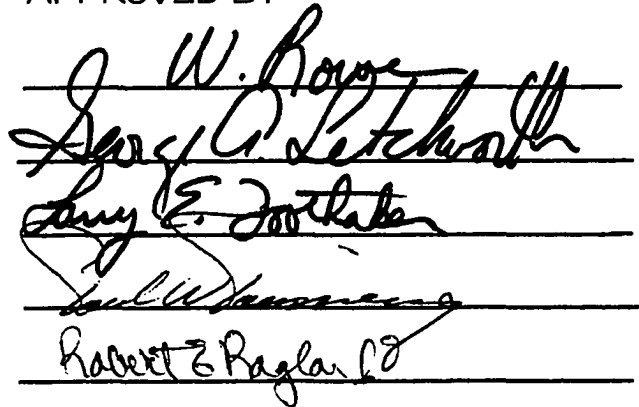 APPROVED BY
W. Rowe
George A. Letchworth
Larry E. Toothaker
Paul W
Robert E Ragland